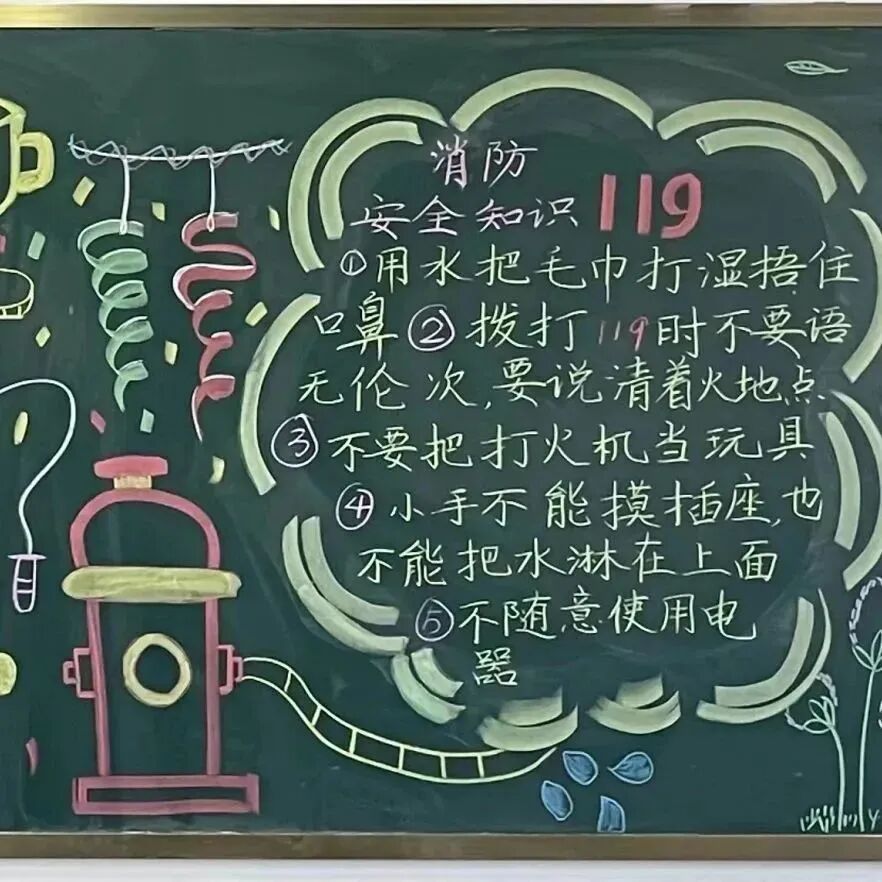 消防
安全知识119
①用水把毛巾打湿捂住
口鼻②拨打119时不要语
无伦次,要说清着火地点
③不要把打火机当玩具
④小手不能摸插座,也
不能把水淋在上面
⑤不随意使用电
器